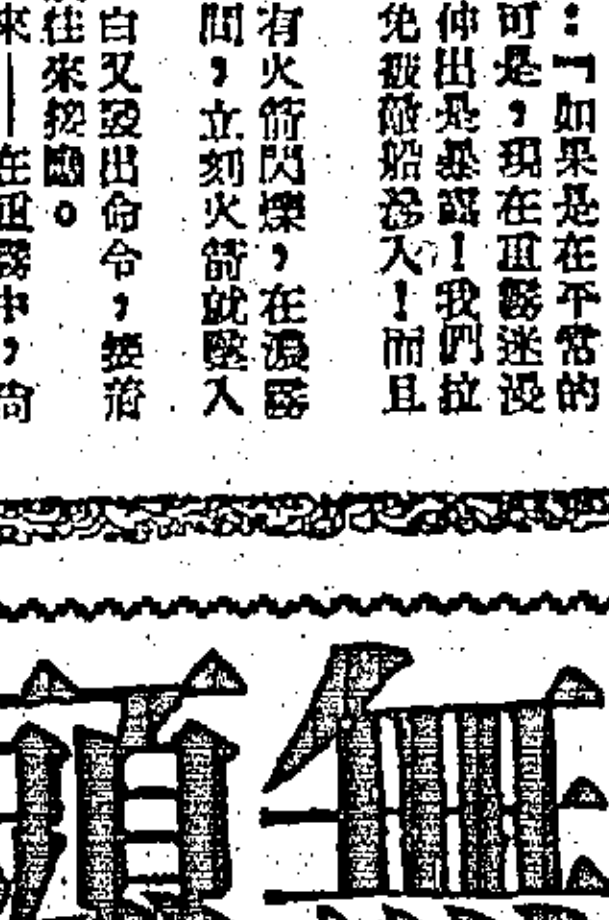 ：「如果是在平常的
可是，現在重霧迷漫
伸出是暴露！我們拉
免被敵船浸入！而且
有火箭閃爍，在濃霧
間，立刻火箭就墜入
白又發出命令，接着
往來接應。
來——在重霧中，尚
無